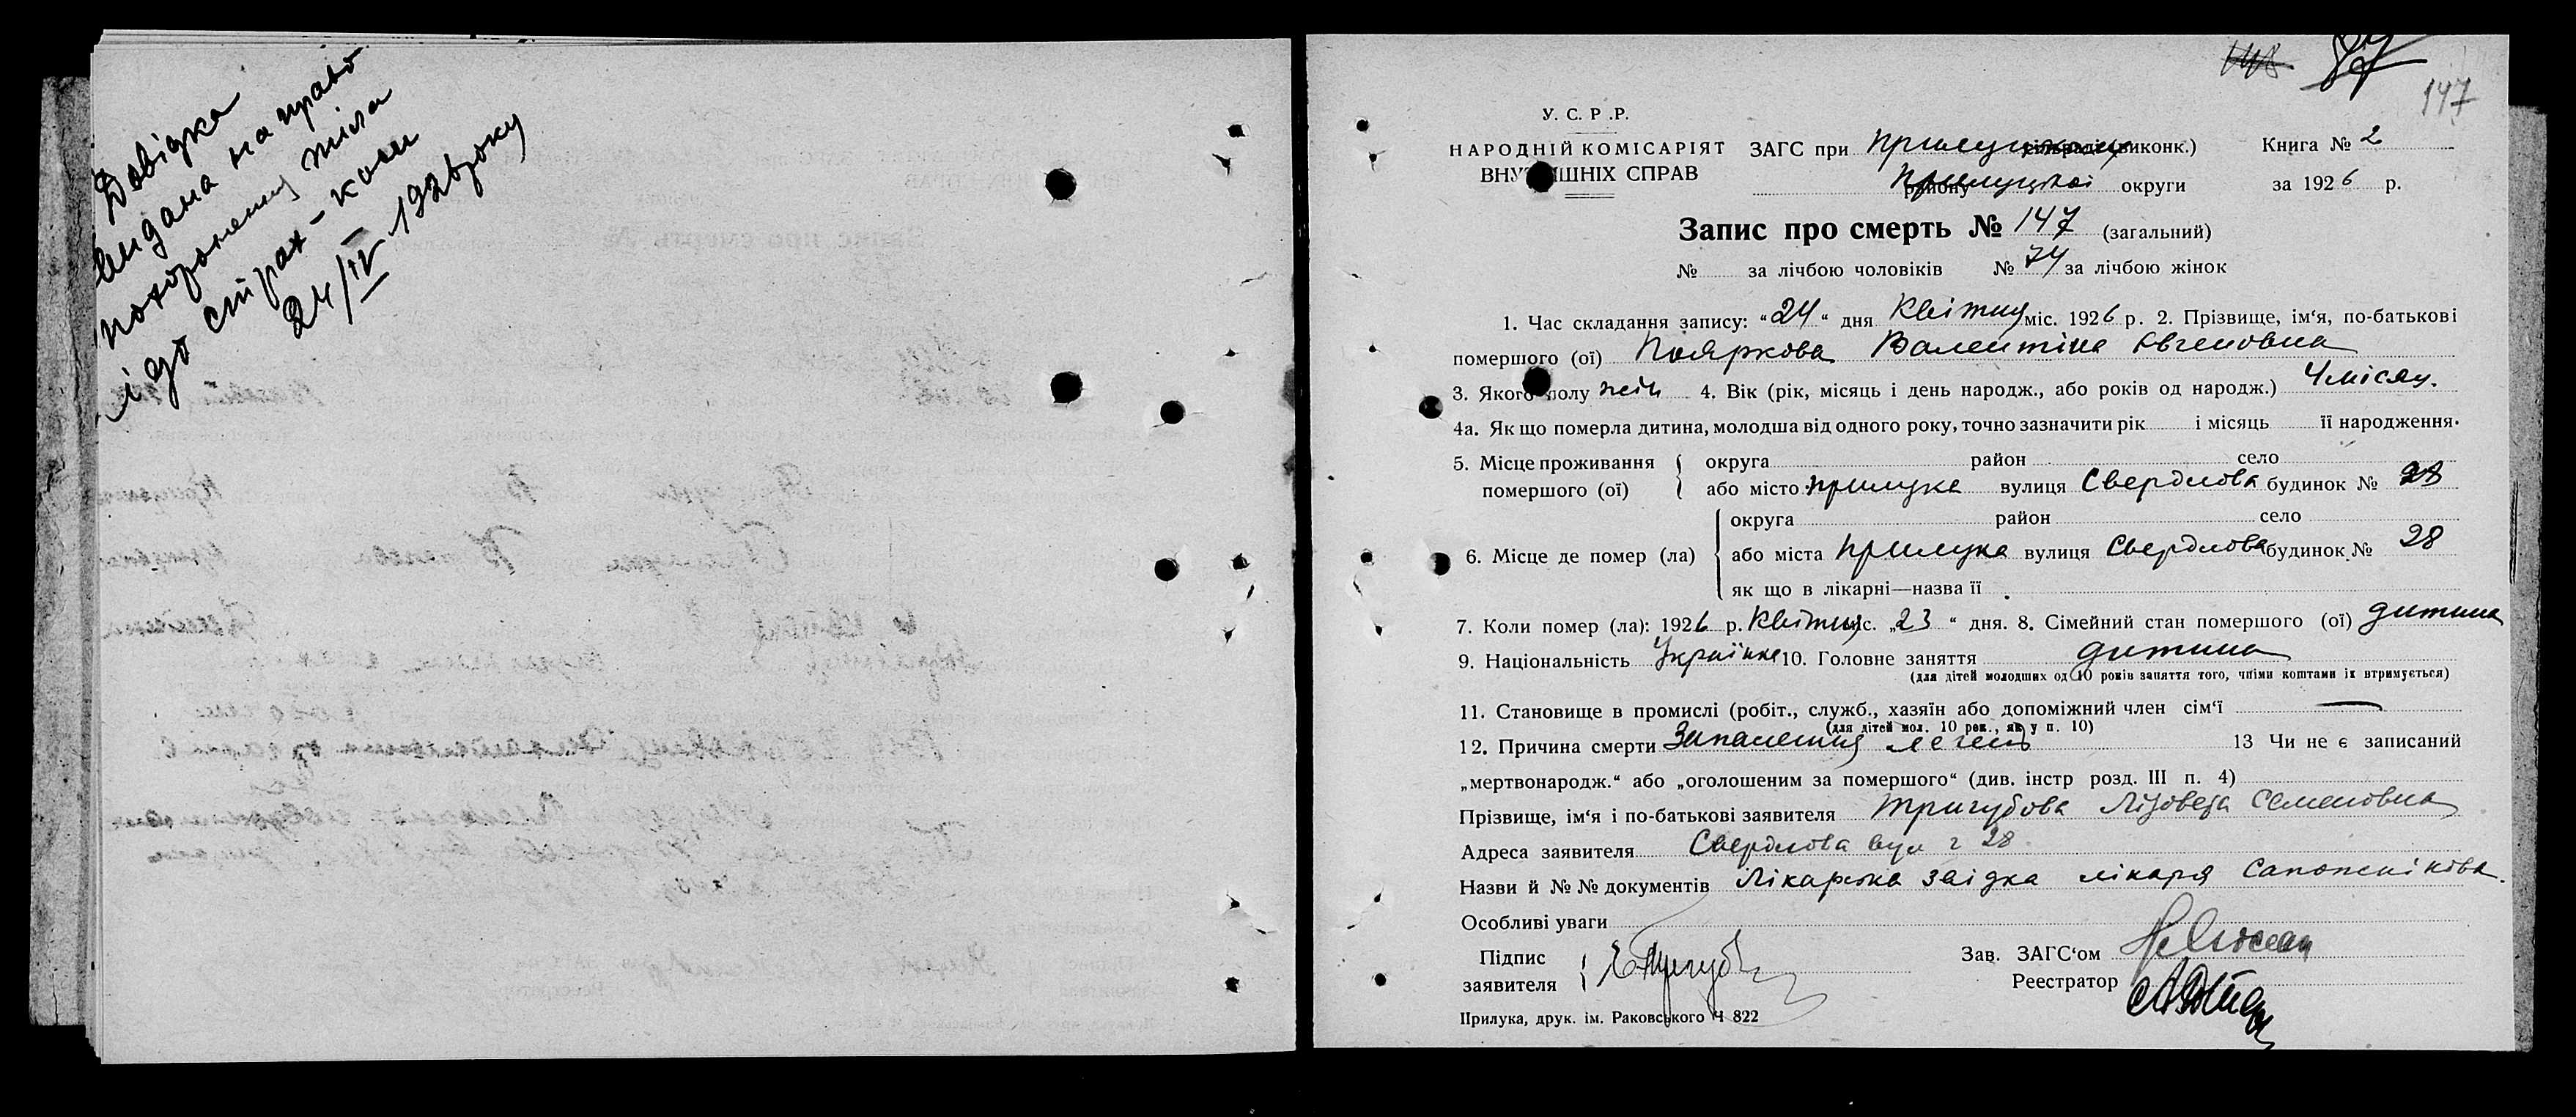 Довідка
видана на право
похоронення тіла
і до страх-каси
24/IV 1926 року
87
147
У. С. Р. Р.
НАРОДНІЙ КОМІСАРІЯТ
ВНУТРІШНІХ СПРАВ
ЗАГС при Прилуцькому (виконк.) Книга № 2
Прилуцької округи за 1926 р.
Запис про смерть № 147 (загальний)
№ за лічбою чоловіків № 74 за лічбою жінок
1. Час складання запису: “24“ дня Квітня міс. 1926 р. 2. Прізвище, ім‘я, по-батькові
помершого (ої) Пояркова Валентіна Євгеновна
3. Якого полу жін 4. Вік (рік, місяць і день народж., або років од народж.) 4 місяц.
4а. Як що померла дитина, молодша від одного року, точно зазначити рік і місяць її народження.
5. Місце проживання помершого (ої) { округа район село
або місто Прилука вулиця Свердлова будинок № 28
6. Місце де помер (ла) { округа район село
або міста Прилука вулиця Свердлова будинок № 28
як що в лікарні—назва її
7. Коли помер (ла): 1926 р. Квітня міс. „23“ дня. 8. Сімейний стан помершого (ої) дитина
9. Національність Українка 10. Головне заняття дитина
(для дітей молодших од 10 років заняття того, чиїми коштами їх втримується)
11. Становище в промислі (робіт., служб., хазяїн або допоміжний член сім‘ї —
(для дітей мол. 10 рок., як у п. 10)
12. Причина смерти Запалення легенів 13 Чи не є записаний
„мертвонародж.“ або „оголошеним за помершого“ (див. інстр розд. III п. 4)
Прізвище, ім‘я і по-батькові заявителя Тригубова Лізовета Семеновна
Адреса заявителя Свердлова вул 28
Назви й №№ документів Лікарська звідка лікаря Сапожнікова.
Особливі уваги
Підпис заявителя { Е Тригуб
Зав. ЗАГС‘ом
Реестратор
Прилука, друк. ім. Раковського Ч 822